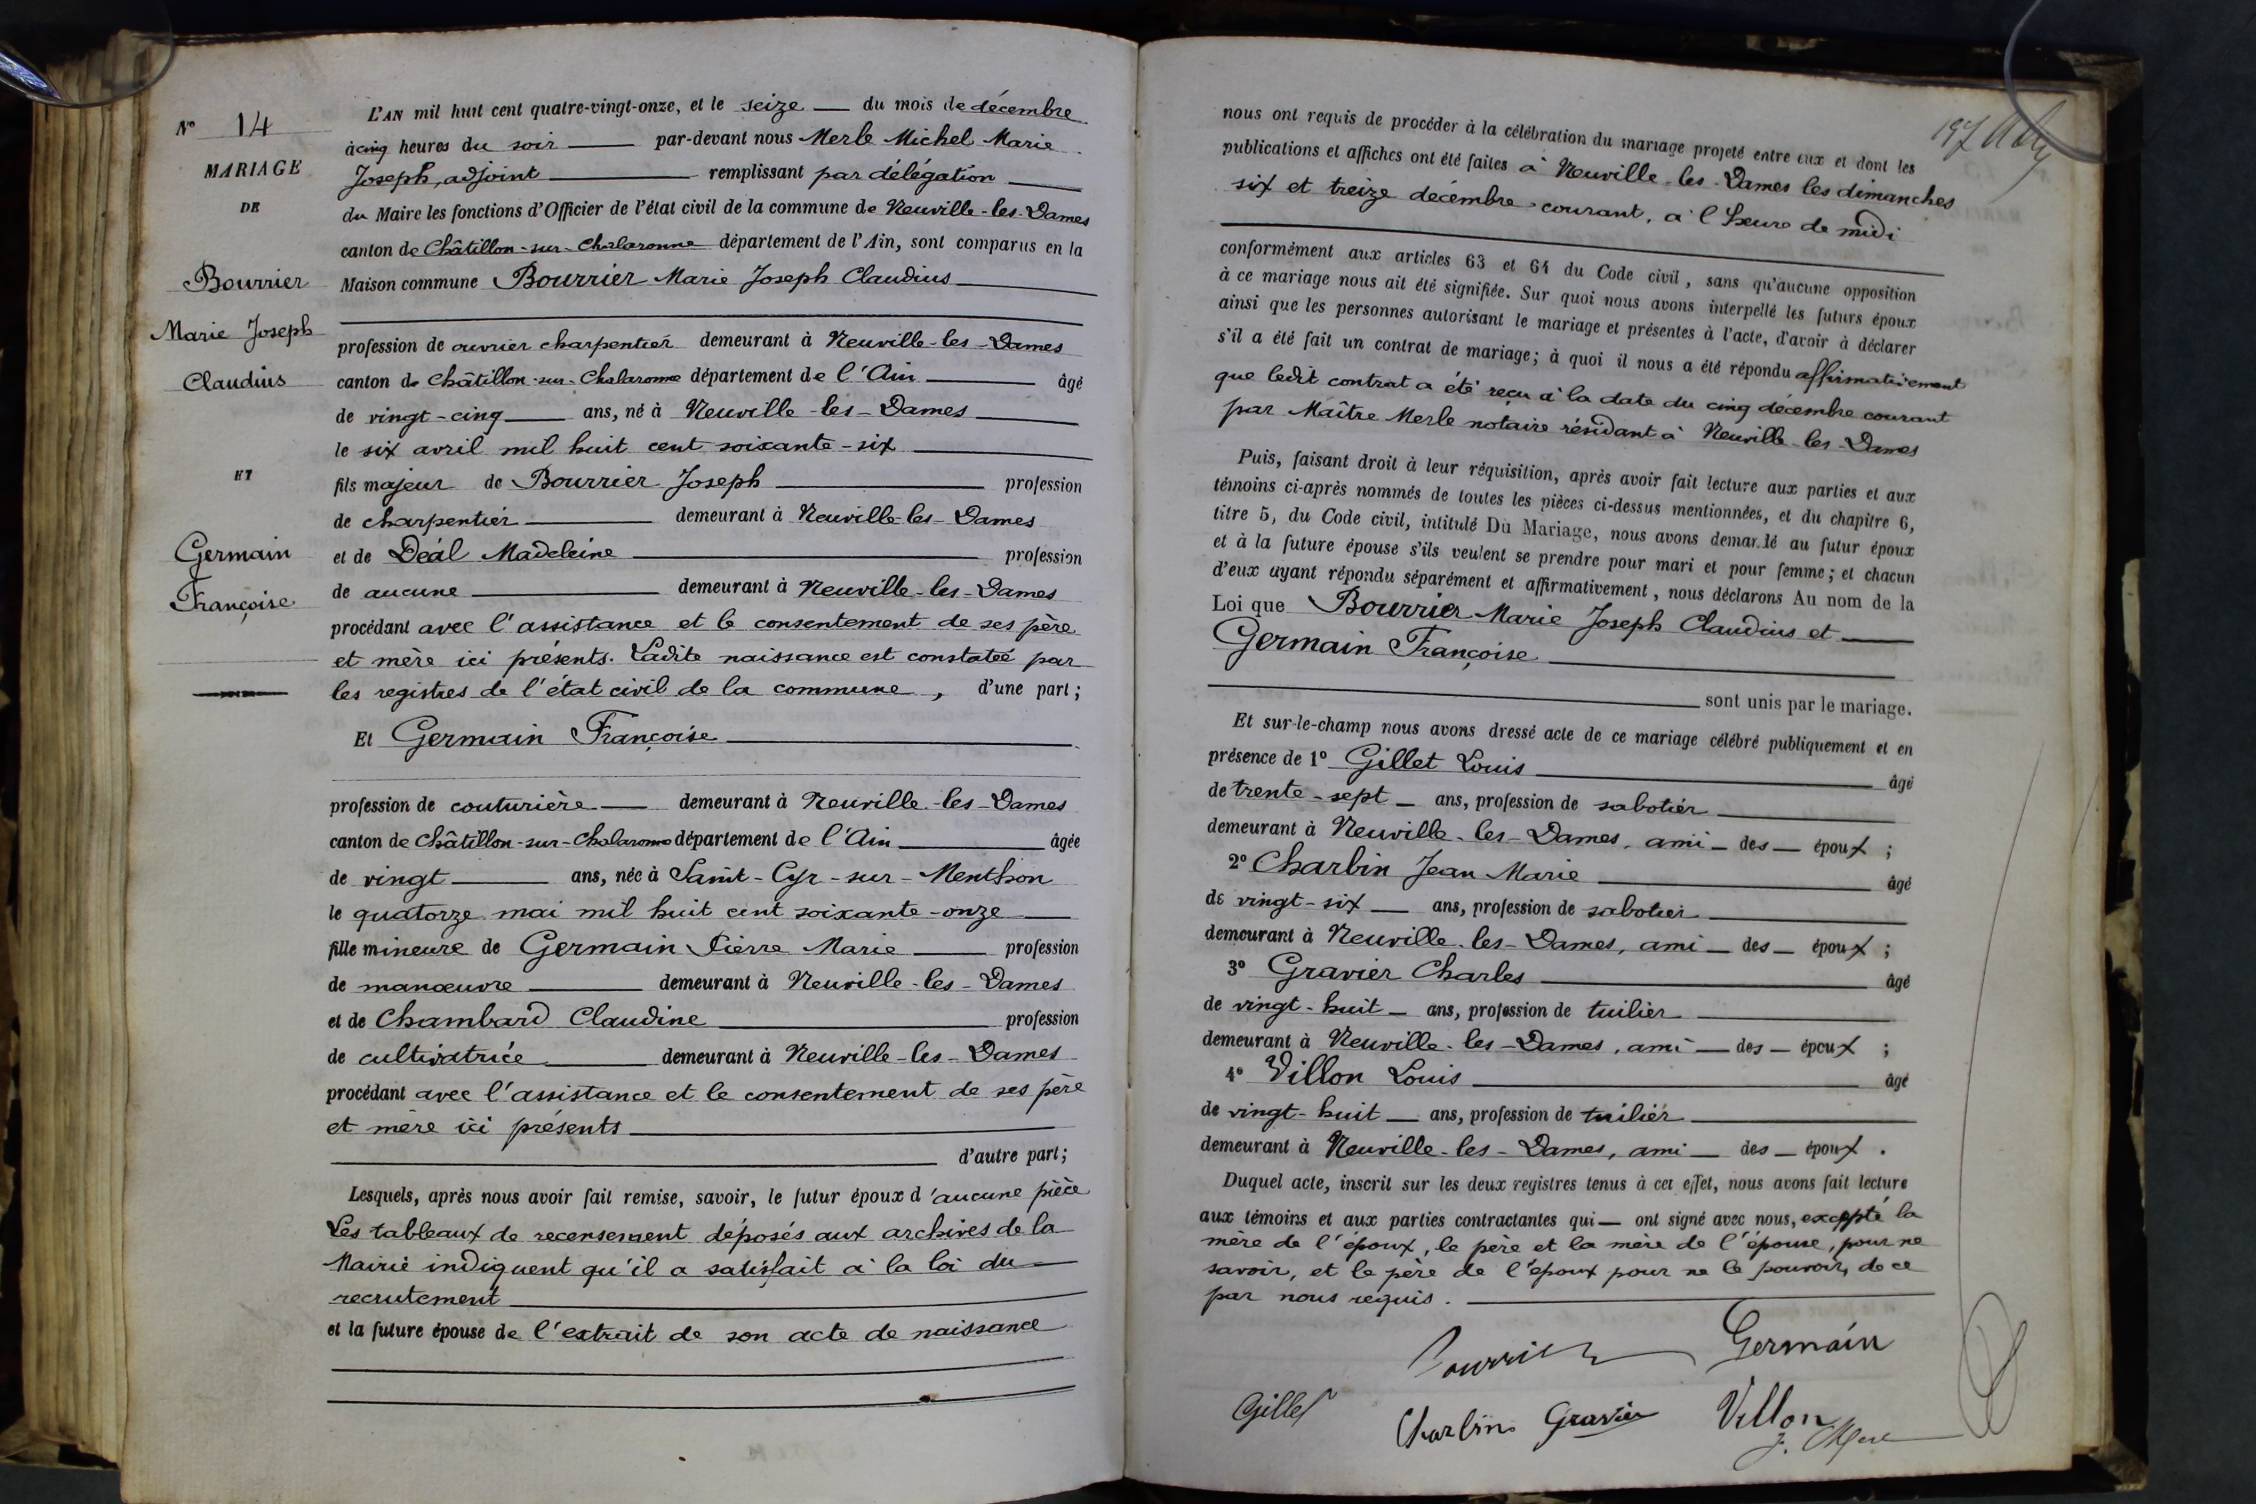 N° 14
MARIAGE
DE
Bourrier
Marie Joseph
Claudius
ET
Germain
Françoise
L'AN mil huit cent quatre-vingt-onze, et le seize du mois de décembre
à cinq heures du soir par-devant nous Merle Michel Marie
Joseph, adjoint remplissant par délégation
du Maire les fonctions d'Officier de l'état civil de la commune de Neuville-les-Dames
canton de Châtillon-sur-Chalaronne département de l'Ain, sont comparus en la
Maison commune Bourrier Marie Joseph Claudius
profession de ouvrier charpentier demeurant à Neuville-les-Dames
canton de Châtillon-sur-Chalaronne département de l'Ain âgé
de vingt-cinq ans, né à Neuville-les-Dames
le six avril mil huit cent soixante-six
fils majeur de Bourrier Joseph profession
de charpentier demeurant à Neuville-les-Dames
et de Déal Madeleine profession
de aucune demeurant à Neuville-les-Dames
procédant avec l'assistance et le consentement de ses père
et mère ici présents. Ladite naissance est constatée par
les registres de l'état civil de la commune, d'une part;
Et Germain Françoise
profession de couturière demeurant à Neuville-les-Dames
canton de Châtillon-sur-Chalaronne département de l'Ain âgée
de vingt ans, née à Saint-Cyr-sur-Menthon
le quatorze mai mil huit cent soixante-onze
fille mineure de Germain Pierre Marie profession
de manœuvre demeurant à Neuville-les-Dames
et de Chambard Claudine profession
de cultivatrice demeurant à Neuville-les-Dames
procédant avec l'assistance et le consentement de ses père
et mère ici présents
d'autre part;
Lesquels, après nous avoir fait remise, savoir, le futur époux d'aucune pièce
Les tableaux de recensement déposés aux archives de la
Mairie indiquent qu'il a satisfait à la loi du
recrutement
et la future épouse de l'extrait de son acte de naissance
197
nous ont requis de procéder à la célébration du mariage projeté entre eux et dont les
publications et affiches ont été faites à Neuville-les-Dames les dimanches
six et treize décembre courant, à l'heure de midi
conformément aux articles 63 et 64 du Code civil, sans qu'aucune opposition
à ce mariage nous ait été signifiée. Sur quoi nous avons interpellé les futurs époux
ainsi que les personnes autorisant le mariage et présentes à l'acte, d'avoir à déclarer
s'il a été fait un contrat de mariage; à quoi il nous a été répondu affirmativement
que ledit contrat a été reçu à la date du cinq décembre courant
par Maître Merle notaire résidant à Neuville-les-Dames
Puis, faisant droit à leur réquisition, après avoir fait lecture aux parties et aux
témoins ci-après nommés de toutes les pièces ci-dessus mentionnées, et du chapitre 6,
titre 5, du Code civil, intitulé Du Mariage, nous avons demandé au futur époux
et à la future épouse s'ils veulent se prendre pour mari et pour femme; et chacun
d'eux ayant répondu séparément et affirmativement, nous déclarons Au nom de la
Loi que Bourrier Marie Joseph Claudius et
Germain Françoise
sont unis par le mariage.
Et sur-le-champ nous avons dressé acte de ce mariage célébré publiquement et en
présence de 1° Gillet Louis âgé
de trente-sept ans, profession de sabotier
demeurant à Neuville-les-Dames, ami des époux;
2° Charbin Jean Marie âgé
de vingt-six ans, profession de sabotier
demeurant à Neuville-les-Dames, ami des époux;
3° Gravier Charles âgé
de vingt-huit ans, profession de tuilier
demeurant à Neuville-les-Dames, ami des époux;
4° Villon Louis âgé
de vingt-huit ans, profession de tuilier
demeurant à Neuville-les-Dames, ami des époux.
Duquel acte, inscrit sur les deux registres tenus à cet effet, nous avons fait lecture
aux témoins et aux parties contractantes qui ont signé avec nous, excepté la
mère de l'époux, le père et la mère de l'épouse, pour ne
savoir, et le père de l'époux pour ne le pouvoir, de ce
par nous requis.
Bourrier Germain
Gillet Charbin Gravier Villon
J. Merle